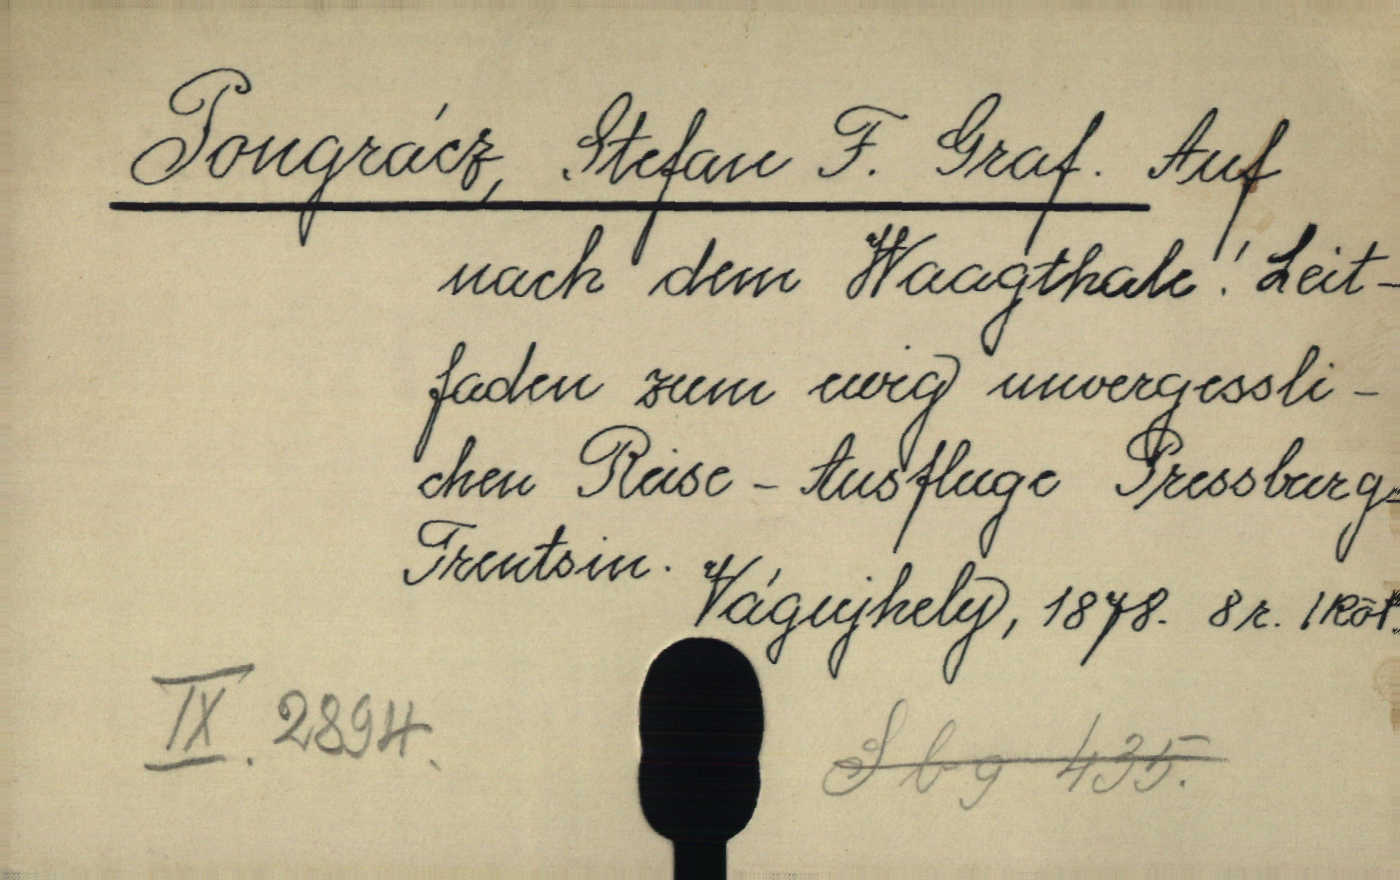 Pongrácz, Stefan F. Graf. Auf
nach dem Waagthale! Leit-
faden zum ewig unvergessli-
chen Reise-Ausfluge Pressburg-
Trentsin. Vágujhely, 1878. 8r. 1 Köt.
IX. 2894.
S b g 435.